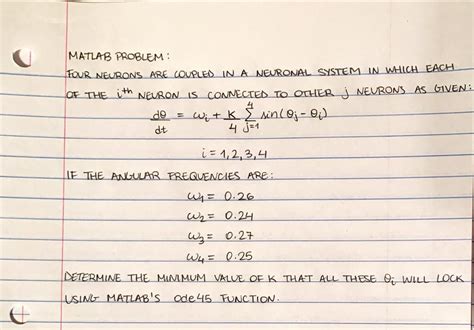 MATLAB PROBLEM:
FOUR NEURONS ARE COUPLED IN A NEURONAL SYSTEM IN WHICH EACH
OF THE iᵗʰ NEURON IS CONNECTED TO OTHER j NEURONS AS GIVEN:
dθ/dt = ωᵢ + K/4 ∑_{j=1}^{4} sin(θⱼ - θᵢ)
i = 1, 2, 3, 4
IF THE ANGULAR FREQUENCIES ARE:
ω₁ = 0.26
ω₂ = 0.24
ω₃ = 0.27
ω₄ = 0.25
DETERMINE THE MINIMUM VALUE OF K THAT ALL THESE θᵢ WILL LOCK
USING MATLAB'S ode45 FUNCTION.